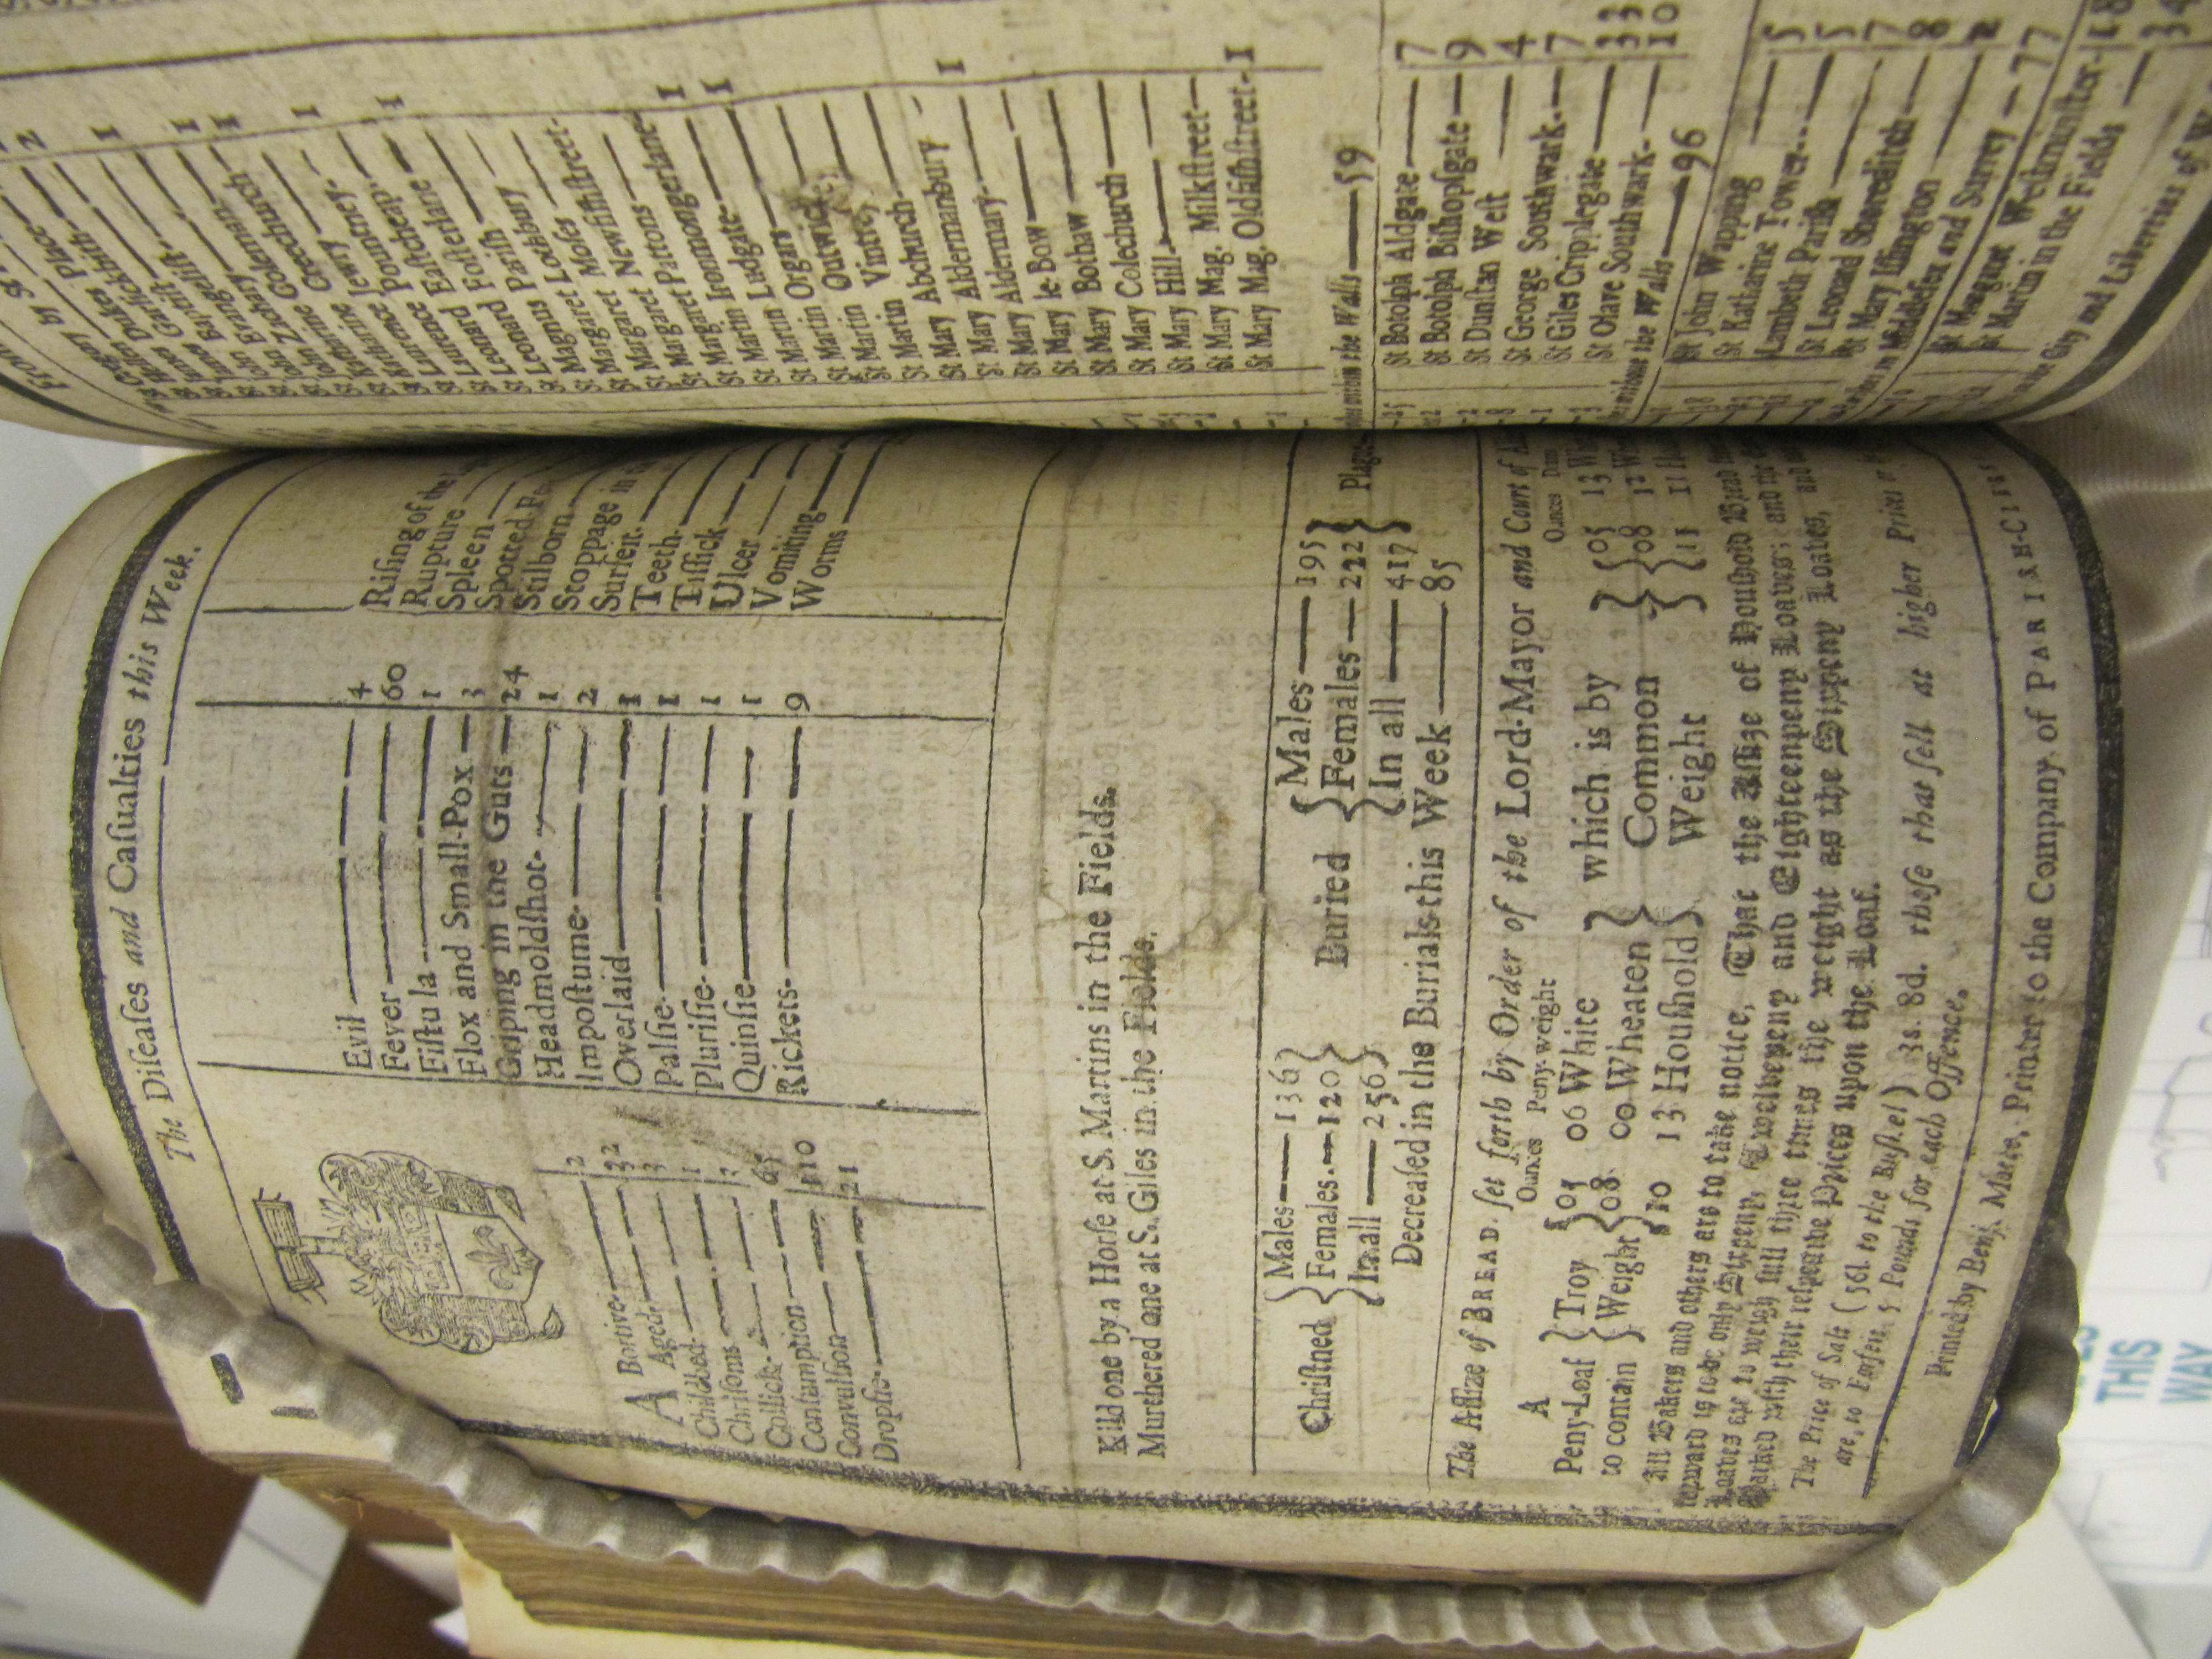 The Diſeaſes and Caſualties this Week.
A Bortive — 2
Aged — 32
Childbed — 3
Chriſoms — 1
Collick — 3
Conſumption — 65
Convulſion — 110
Dropſie — 21
Evil — 4
Fever — 60
Fiſtula — 1
Flox and Small-Pox — 3
Griping in the Guts — 24
Headmoldſhot — 1
Impoſtume — 2
Overlaid — 1
Palſie — 1
Pluriſie — 1
Quinſie — 1
Rickets — 9
Riſing of the
Rupture
Spleen
Spotted
Stilborn
Stoppage in
Surfeit
Teeth
Tiſſick
Ulcer
Vomiting
Worms
Kild one by a Horſe at S. Martins in the Fields.
Murthered one at S. Giles in the Fields.
Chriſtned { Males — 136 Females — 120 In all — 256 }
Buried { Males — 195 Females — 222 In all — 417 } Plague
Decreaſed in the Burials this Week — 85
The Aſſize of BREAD ſet forth by Order of the Lord-Mayor and Court of
Ounces Peny-weight Ounces
A Peny-Loaf to contain { Troy Weight } 05 06 White 08 00 Wheaten 10 13 Houſhold } which is by Common Weight { 05 13 08 12 11 11
All Bakers and others are to take notice, That the Aſſize of Houſhold Bread
upward is to be only Sixpeny, Twelvepeny and Eighteenpeny Loaves; and the
Loaves are to weigh full thrice times the weight as the Sixpeny Loaves, and
Marked with their reſpective Prices upon the Loaf.
The Price of Salt (56l. to the Buſhel) 3s. 8d. thoſe that ſell at higher Prices
are, to Forfeit 5 Pounds for each Offence.
Printed by Benj. Motte, Printer to the Company of PARISH-
by S
St Gregory
Dukes Place
St James Garlickhith — 1
St John Baptiſt
St John Evangeliſt — 1
St John Zachary — 1
St Katharine Coleman
St Katharine Creechurch — 1
St Laurence Jewry
St Laurence Pountney — 1
St Leonard Eaſtcheap
St Leonard Foſterlane
St Magnus Pariſh
St Margaret Lothbury
St Margaret Moſes
St Margaret Newfiſhſtreet
St Margaret Pattons
St Martin Ironmongerlane — 1
St Martin Ludgate — 1
St Martin Orgars
St Martin Outwich
St Martin Vintrey
St Mary Abchurch
St Mary Aldermanbury
St Mary Aldermary — 1
St Mary le Bow
St Mary Bothaw
St Mary Colechurch
St Mary Hill
St Mary Mag. Milkſtreet
St Mary Mag. Oldfiſhſtreet — 1
within the Walls — 59
St Botolph Aldgate — 7
St Botolph Biſhopſgate — 9
St Dunſtan Weſt — 4
St George Southwark — 7
St Giles Cripplegate — 33
St Olave Southwark — 10
without the Walls — 96
St John Wapping — 5
St Katharine Tower — 5
Lambeth Pariſh — 7
St Leonard Shoreditch — 8
St Mary Iſlington — 2
in Middleſex and Surrey — 77
St Margaret Weſtminſter — 18
St Martin in the Fields — 34
City and Liberties of
THIS
WAY